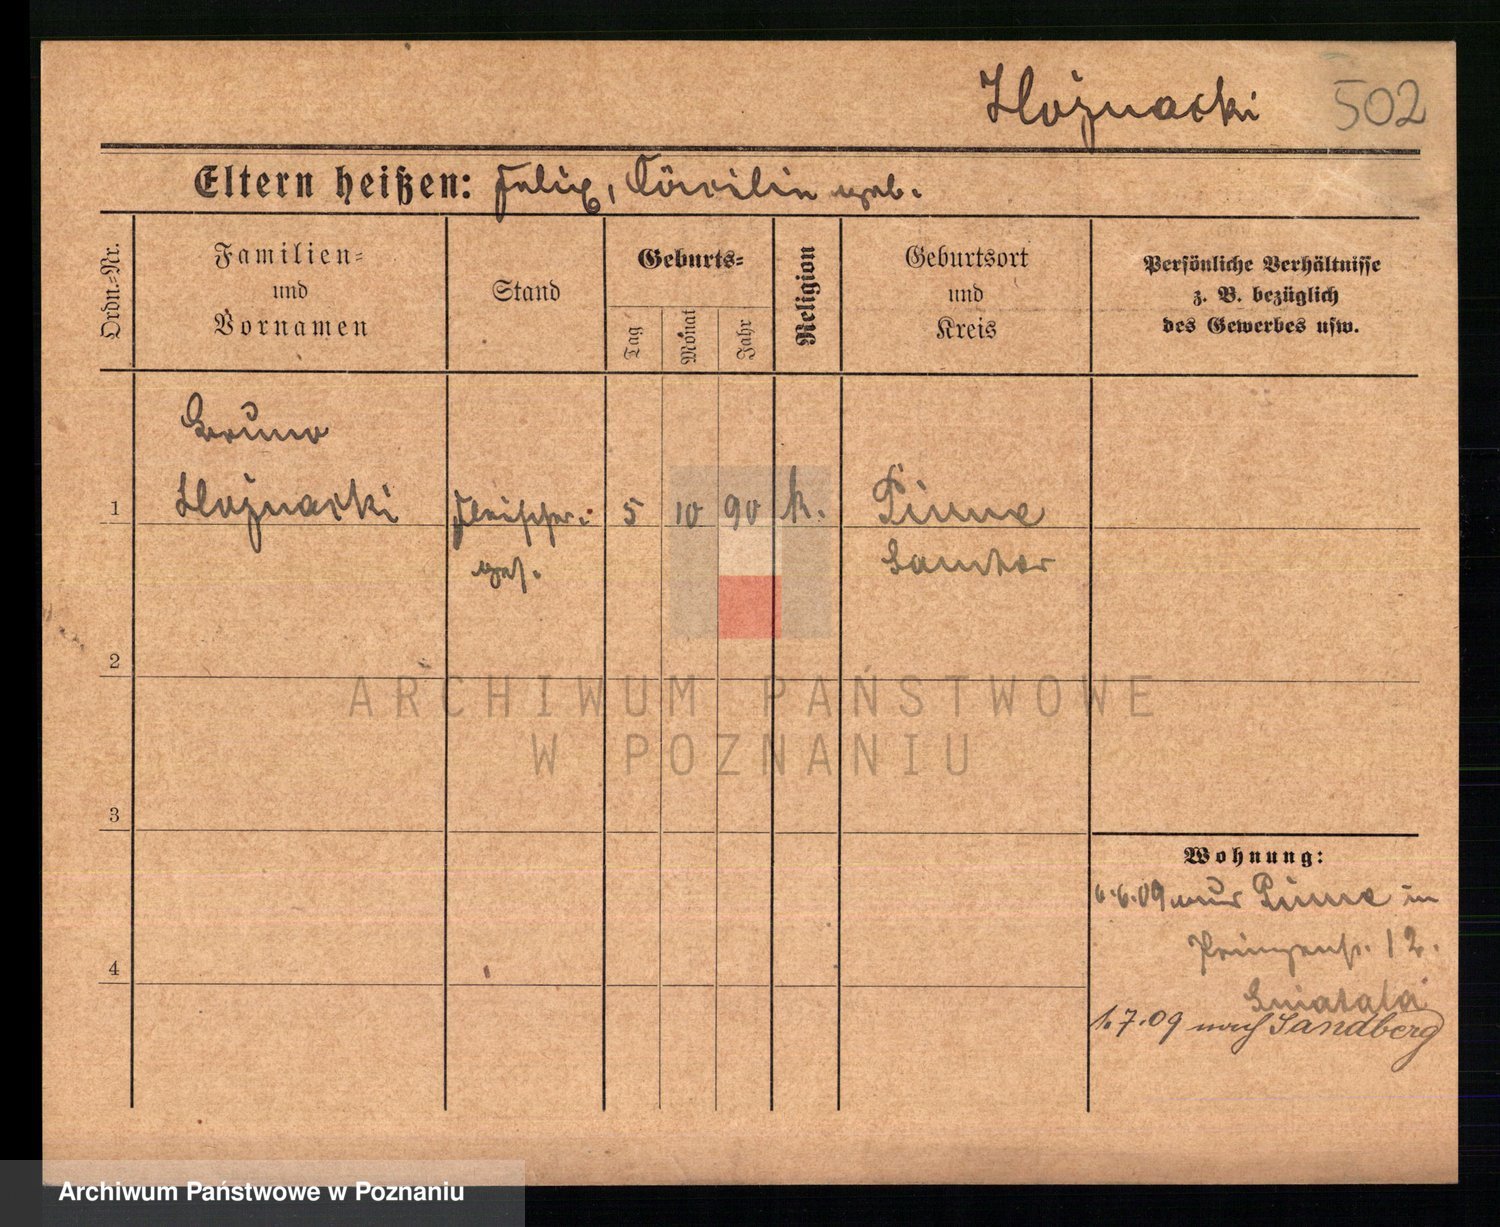 Hoznacki 502
Eltern heißen: Felix, Cäcilie geb.
Ordn.-Nr.
Familien-
und
Vornamen
Stand
Geburts-
Tag
Monat
Jahr
Religion
Geburtsort
und
Kreis
Persönliche Verhältnisse
z. B. bezüglich
des Gewerbes usw.
Bruno
1 Hoznacki Fleischer- 5 10 90 k. Pinne
ges. Samter
2
3
4
Wohnung:
6.09 Pinne in
Prinzenstr. 12.
1.7.09 nach Sandberg
ARCHIWUM PAŃSTWOWE
W POZNANIU
Archiwum Państwowe w Poznaniu